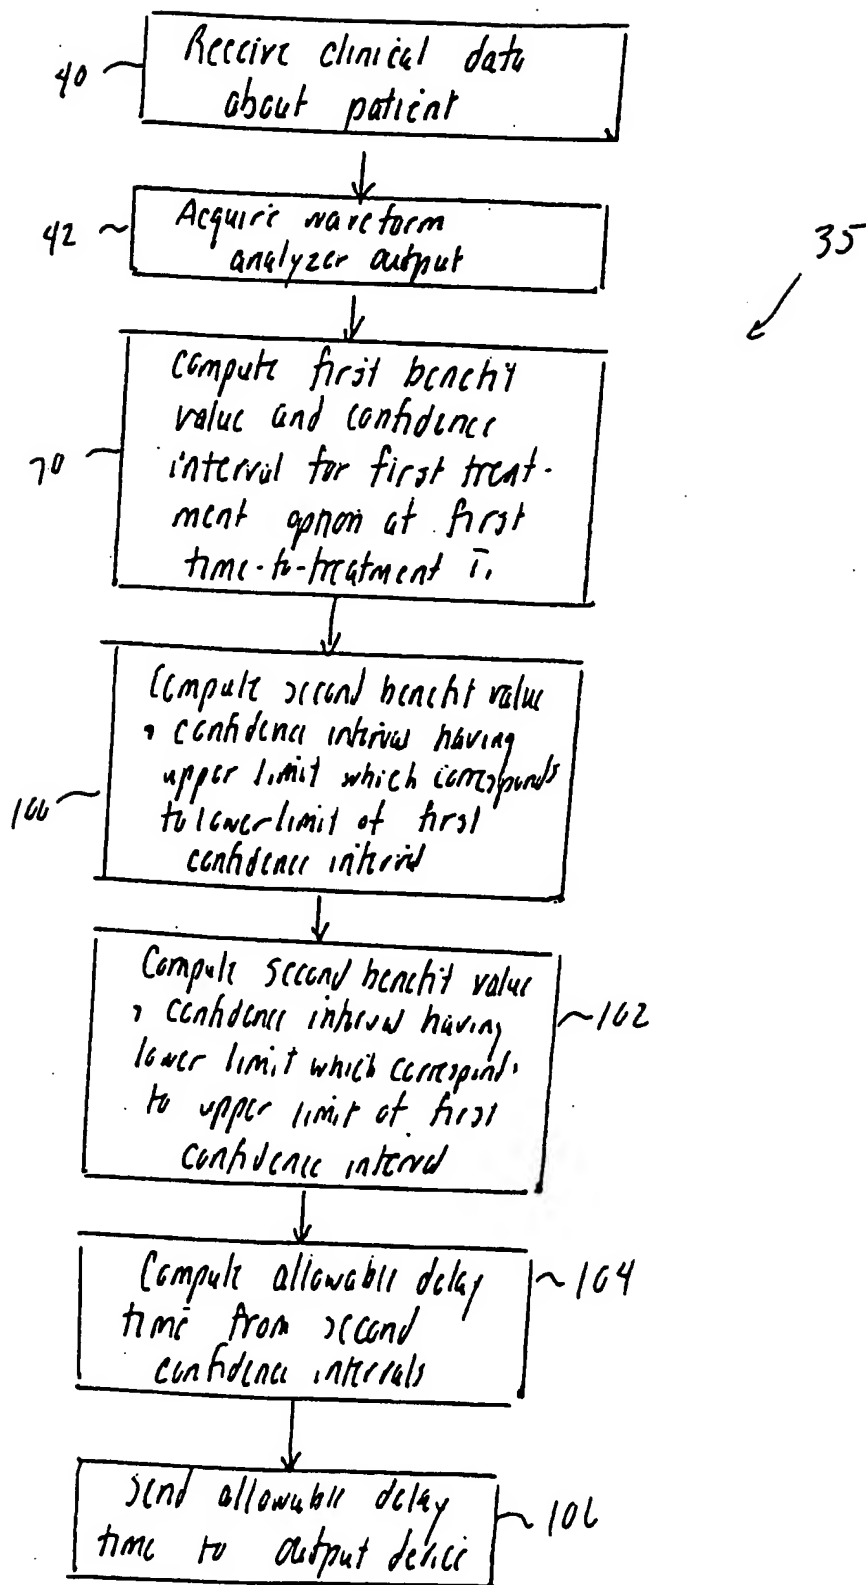 40
Receive clinical data
about patient
42
Acquire waveform
analyzer output
35
70
Compute first benefit
value and confidence
interval for first treat-
ment option at first
time-to-treatment T1
100
Compute second benefit value
, confidence interval having
upper limit which corresponds
to lower limit of first
confidence interval
Compute second benefit value
, confidence interval having
lower limit which corresponds
to upper limit of first
confidence interval
102
Compute allowable delay
time from second
confidence intervals
104
Send allowable delay
time to output device
106